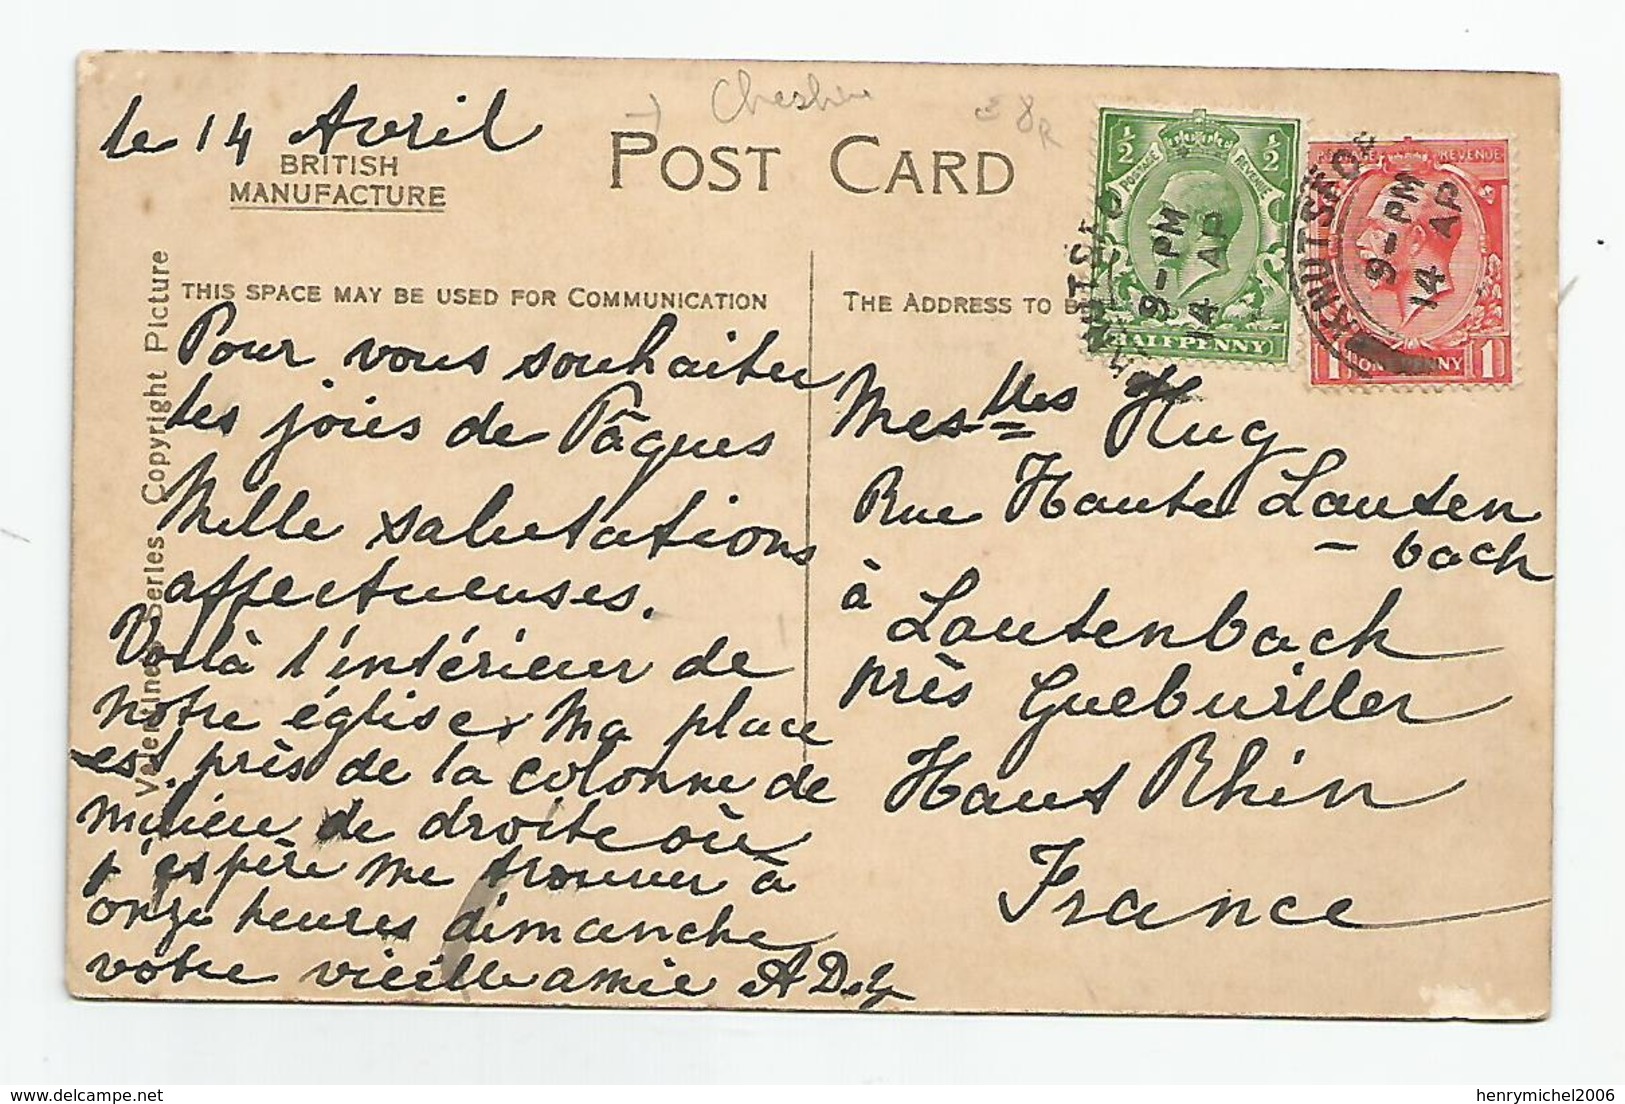 Cheshire
le 14 Avril
BRITISH
MANUFACTURE
POST CARD
THIS SPACE MAY BE USED FOR COMMUNICATION
THE ADDRESS TO B
Valentines Series Copyright Picture
Pour vous souhaiter
les joies de Pâques
Mille salutations
affectueuses.
Voilà l'intérieur de
notre église. Ma place
est près de la colonne de
milieu de droite où
j'espère me trouver à
onze heures dimanche
votre vieille amie
½ ½
POSTAGE REVENUE
HALFPENNY
KNUTSFO
9-PM
14 AP
REVENUE
1 ONE PENNY 1
KNUTSFORD
9-PM
14 AP
Mesdlles Hug
Rue Haute Lauten
bach
à Lautenbach
près Guebwiller
Haut Rhin
France
delcampe.net
henrymichel2006